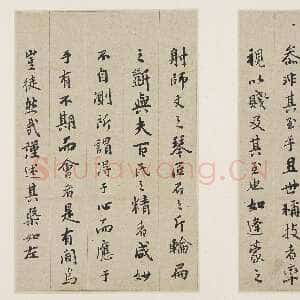 叅非其至乎且世稱技者率
視以賤及其至也如逢蒙之
射師文之琴匠石之斤輪扁
之斲與夫百工之精者咸妙
不自測所謂得于心而應于
手有不期而會者是有間焉
豈徒然哉謹述其槩如左